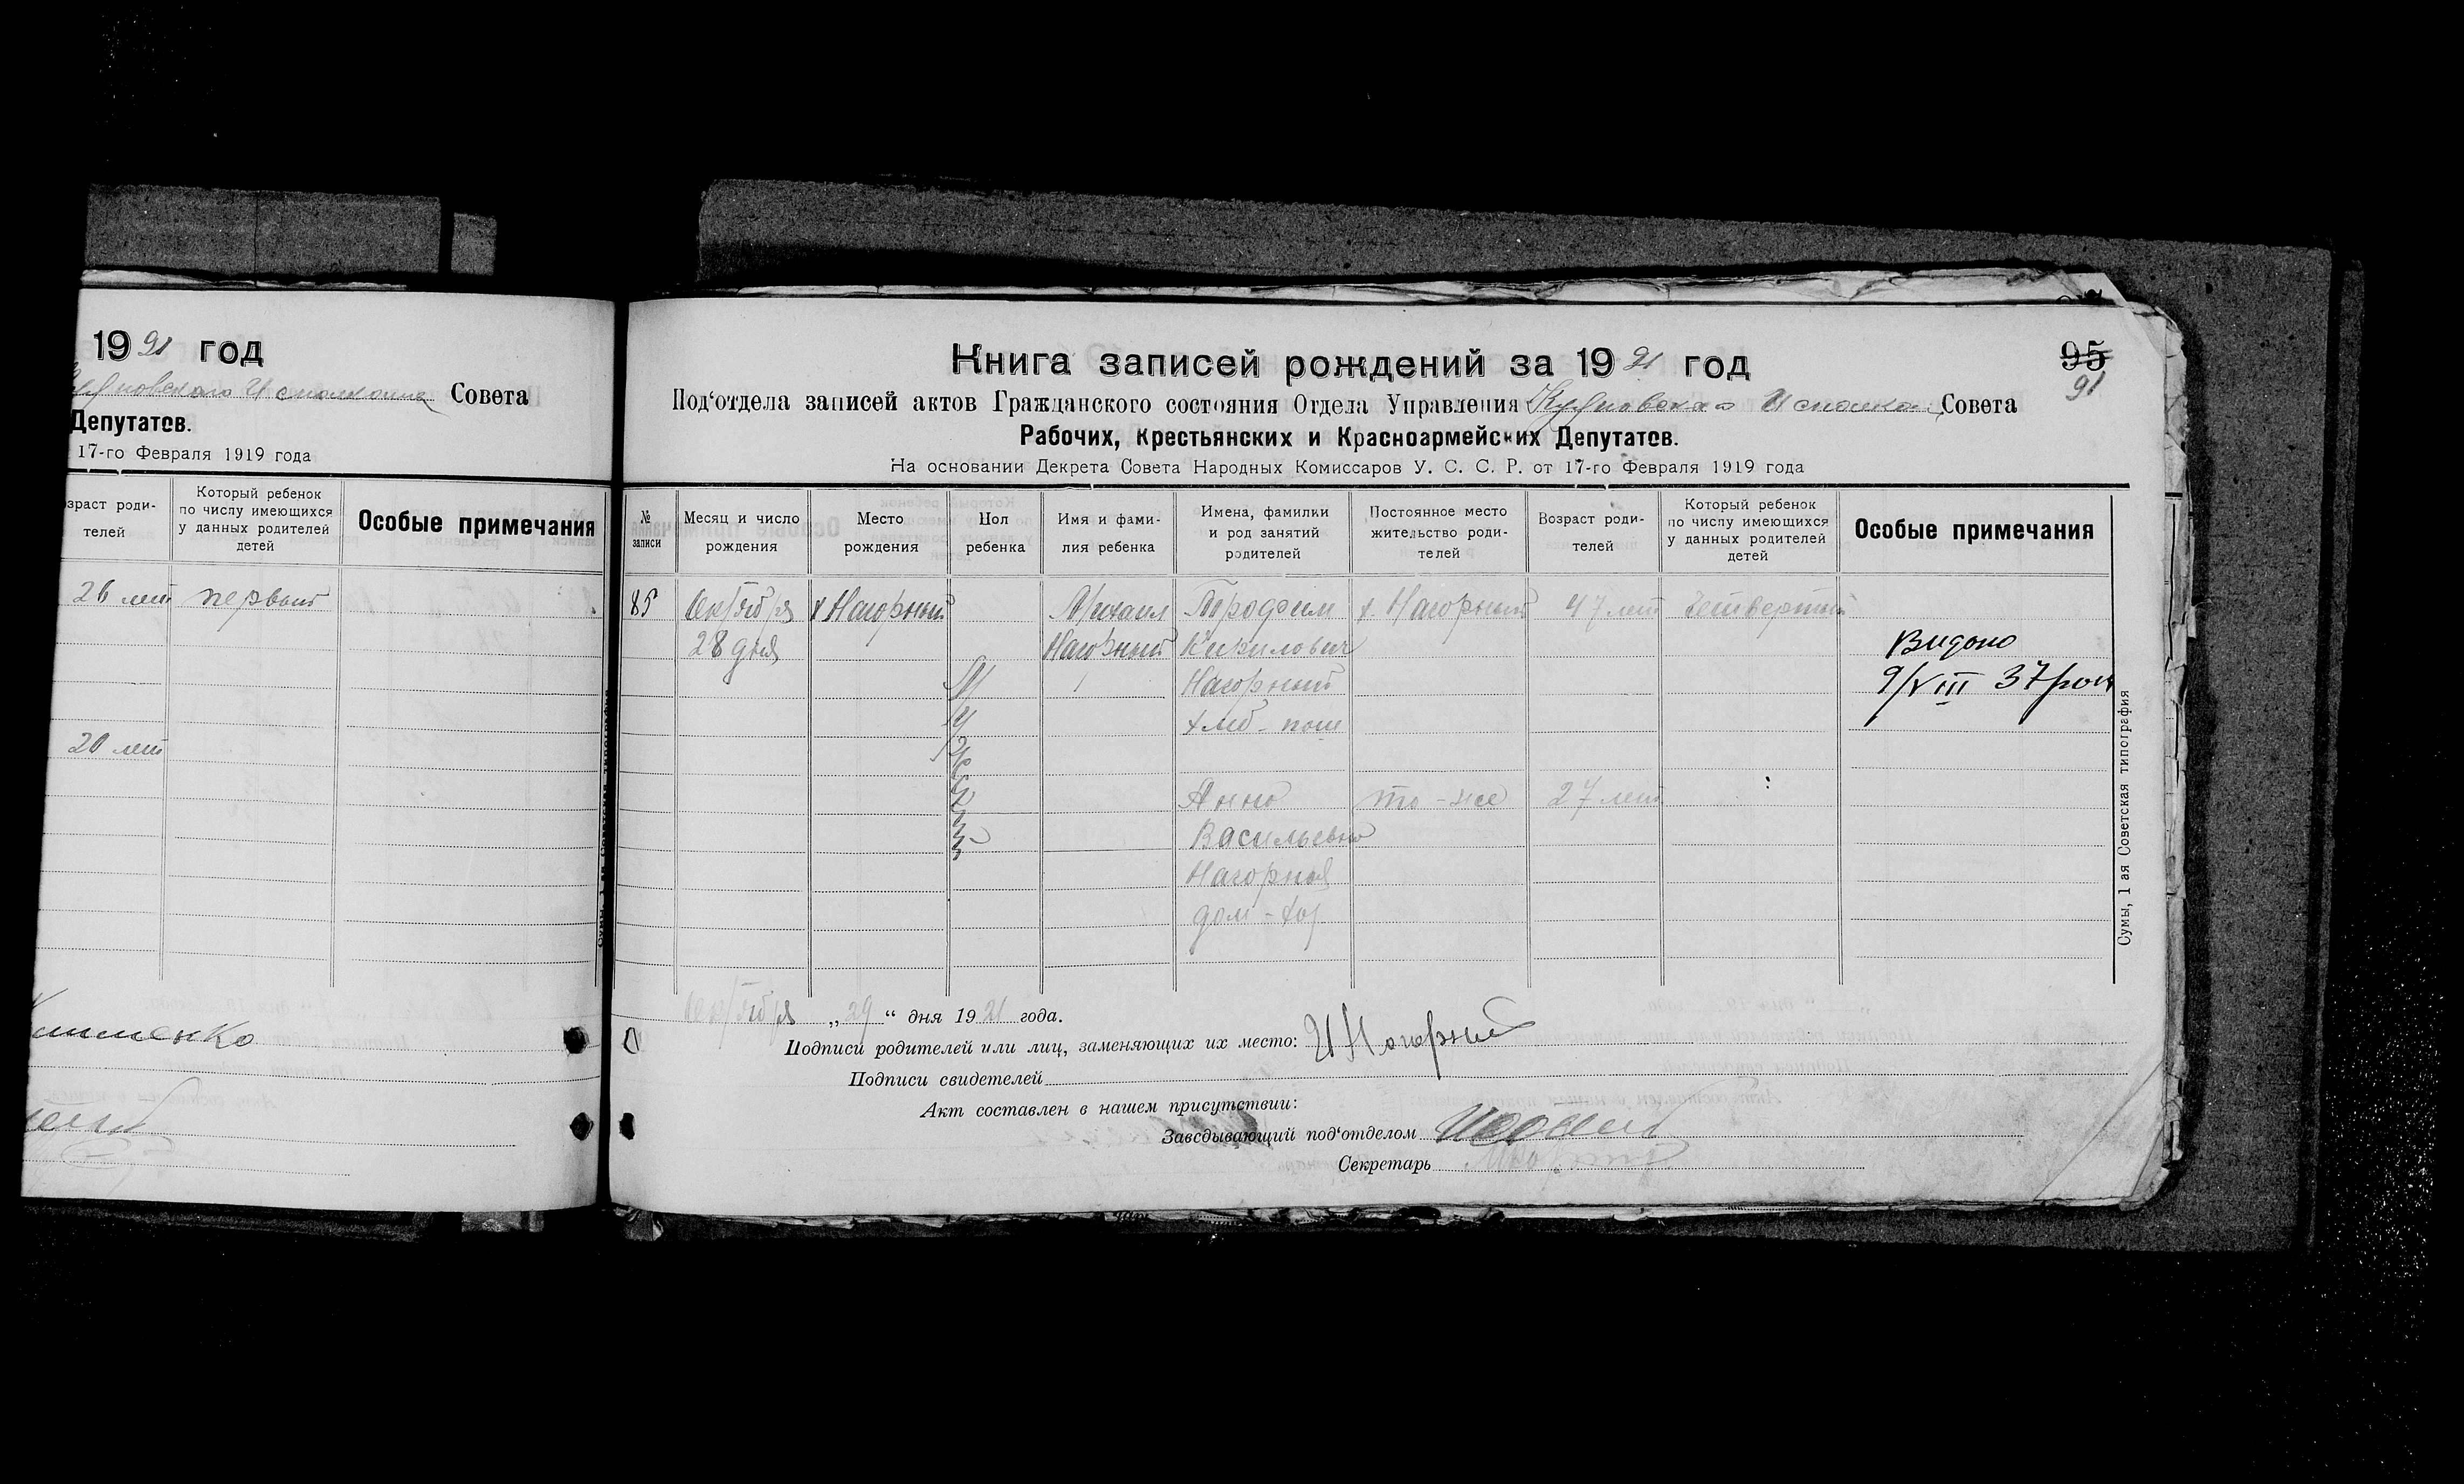 1921 год
Совета
Депутатов.
17-го Февраля 1919 года
зраст роди-
телей
Который ребенок
по числу имеющихся
у данных родителей
детей
Особые примечания
26 лет первый
20 лет
Книга записей рождений за 1921 год
95
91
Под‘отдела записей актов Гражданского состояния Отдела Управления Совета
Рабочих, Крестьянских и Красноармейских Депутатов.
На основании Декрета Совета Народных Комиссаров У. С. С. Р. от 17-го Февраля 1919 года
№
записи
Месяц и число
рождения
Место
рождения
Пол
ребенка
Имя и фами-
лия ребенка
Имена, фамилки
и род занятий
родителей
Постоянное место
жительство роди-
телей
Возраст роди-
телей
Который ребенок
по числу имеющихся
у данных родителей
детей
Особые примечания
85 Октября х Нагорный Михаил Трофим х. Нагорный 47 лет Четвертый
28 дня Нагорный Кирилович
Нагорный
хлеб-паш
Мужской
Анна то-же 27 лет
Васильевна
Нагорная
дом-хоз
Видано
9/VIII 37 рок
Октября „29“ дня 1921 года.
Подписи родителей или лиц, заменяющих их место: И Нагорный
Подписи свидетелей
Акт составлен в нашем присутствии:
Заведывающий под‘отделом
Секретарь
Сумы, 1 ая Советская типография